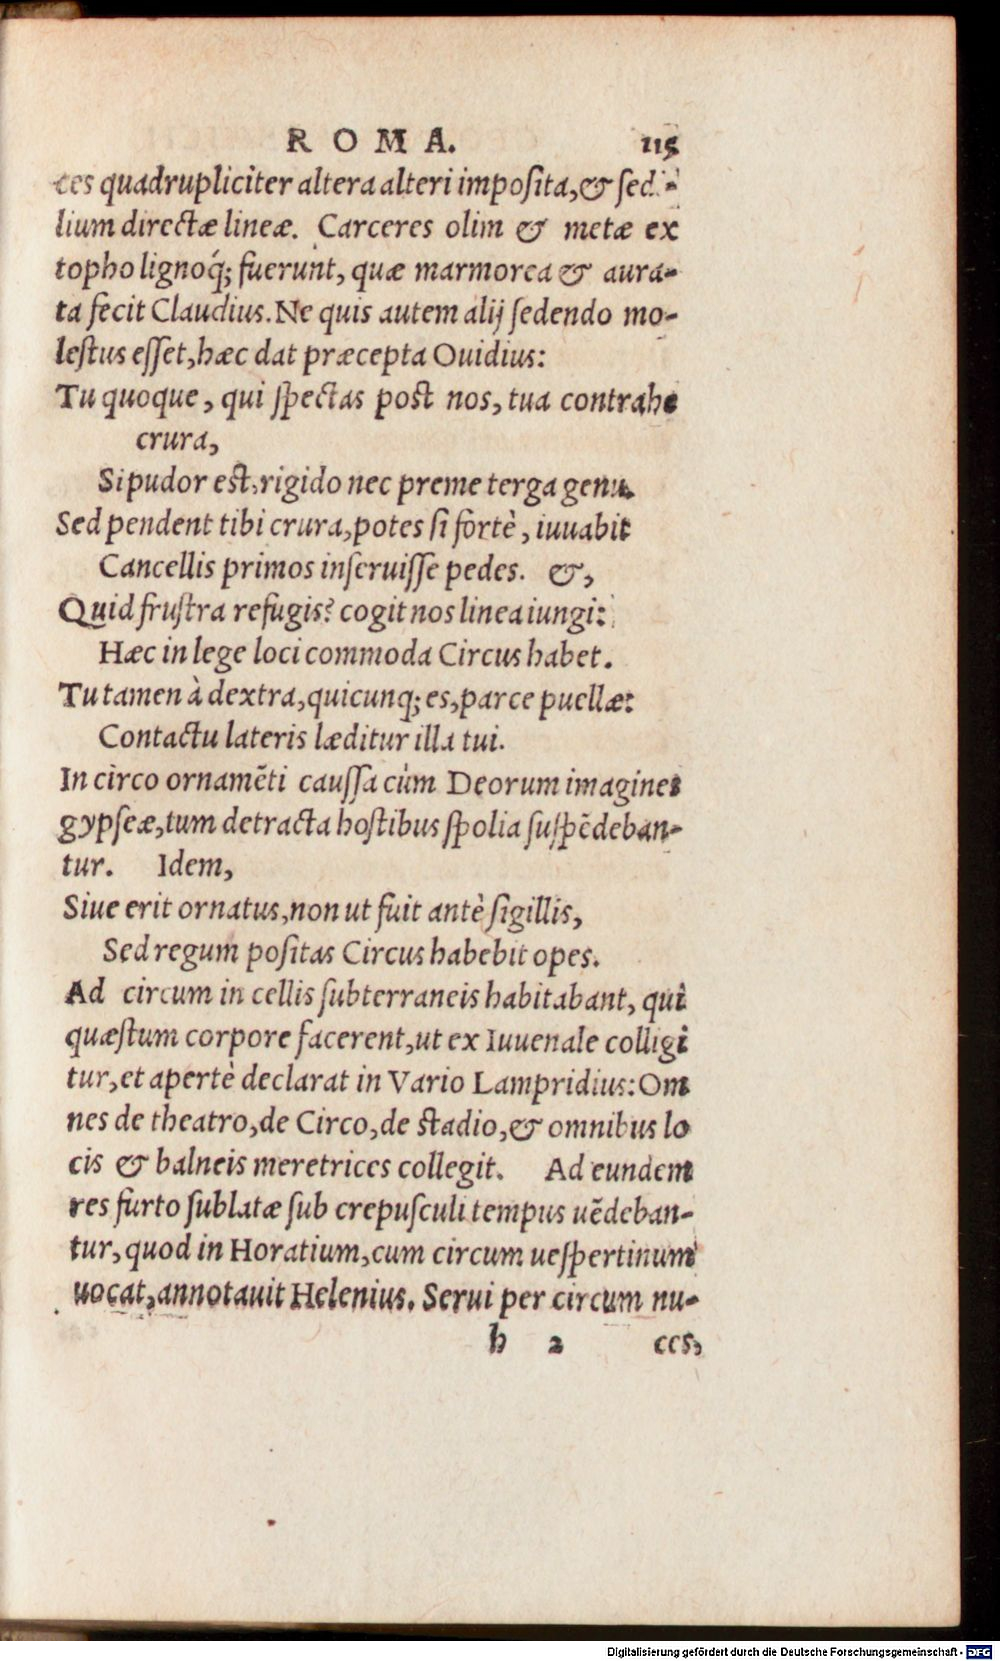 ROMA. 115
ces quadrupliciter altera alteri imposita, & sedi-
lium directæ lineæ. Carceres olim & metæ ex
topho lignoq́; fuerunt, quæ marmorea & aura-
ta fecit Claudius. Ne quis autem alij sedendo mo-
lestus esset, hæc dat præcepta Ouidius:
Tu quoque, qui spectas post nos, tua contrahe
crura,
Si pudor est, rigido nec preme terga genu.
Sed pendent tibi crura, potes si fortè, iuuabit
Cancellis primos inseruisse pedes. &,
Quid frustra refugis? cogit nos linea iungi:
Hæc in lege loci commoda Circus habet.
Tu tamen à dextra, quicunq; es, parce puellæ:
Contactu lateris læditur illa tui.
In circo ornamēti caussa cùm Deorum imagines
gypseæ, tum detracta hostibus spolia suspēdeban-
tur. Idem,
Siue erit ornatus, non ut fuit antè sigillis,
Sed regum positas Circus habebit opes.
Ad circum in cellis subterraneis habitabant, qui
quæstum corpore facerent, ut ex Iuuenale colligi
tur, et apertè declarat in Vario Lampridius: Om
nes de theatro, de Circo, de stadio, & omnibus lo
cis & balneis meretrices collegit. Ad eundem
res furto sublatæ sub crepusculi tempus uēdeban-
tur, quod in Horatium, cum circum uespertinum
uocat, annotauit Helenius. Serui per circum nu-
h 2 ces,
Digitalisierung gefördert durch die Deutsche Forschungsgemeinschaft - DFG